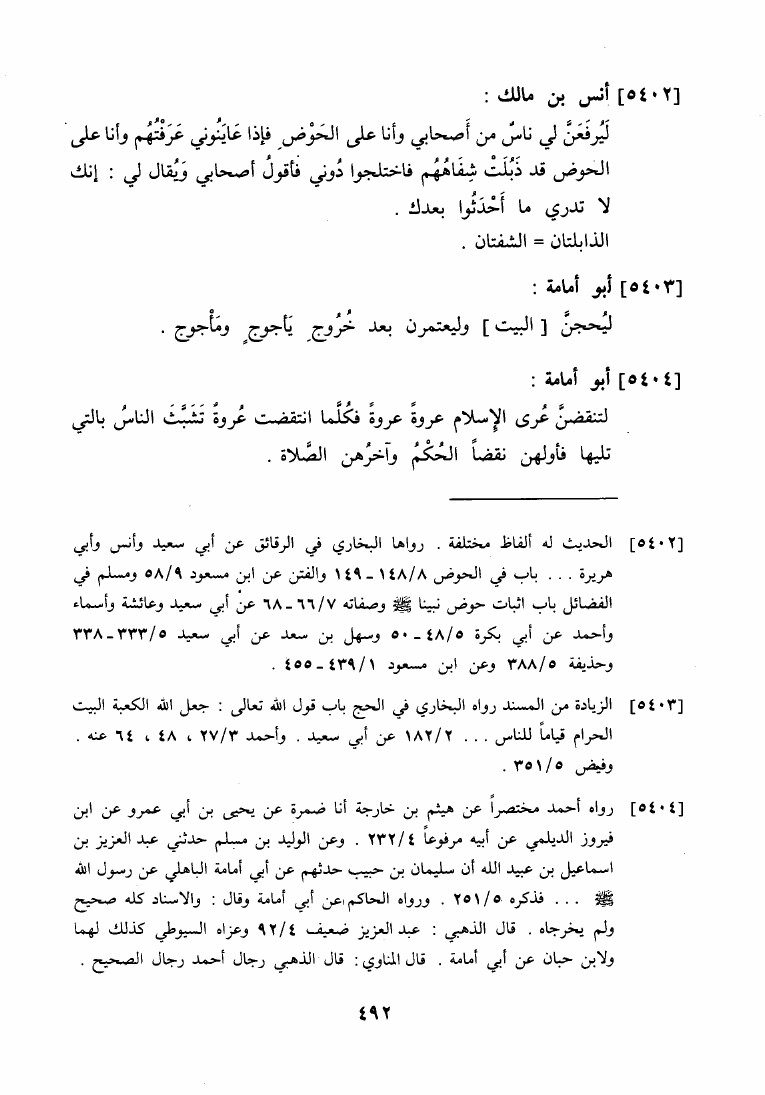 [٥٤٠٢] أنس بن مالك :
لَيُرفَعَنَّ لي ناسٌ من أَصحابي وأنا على الحَوْضِ فإذا عَايَنُوني عَرَفْتُهُم وأنا على
الحوض قد ذَبُلَتْ شِفَاهُهُم فاختلجوا دُوني فأقولُ أصحابي وَيُقال لي : إنك
لا تدري ما أَحْدَثُوا بعدك .
الذابلتان = الشفتان .
[٥٤٠٣] أبو أمامة :
ليُحجنَّ [ البيت ] وليعتمرن بعد خُرُوجِ يَأجوجٍ ومَأْجوج .
[٥٤٠٤] أبو أمامة :
لتنقضنَّ عُرى الإِسلامِ عروةً عروةً فكُلَّما انتقضت عُروةٌ تَشَبَّثَ الناسُ بالتي
تليها فأولهن نقضاً الحُكْمُ وآخرُهن الصَّلاة .
[٥٤٠٢] الحديث له ألفاظ مختلفة . رواها البخاري في الرقائق عن أبي سعيد وأنس وأبي
هريرة ... باب في الحوض ١٤٨/٨ - ١٤٩ والفتن عن ابن مسعود ٥٨/٩ ومسلم في
الفضائل باب اثبات حوض نبينا ﷺ وصفاته ٦٦/٧ - ٦٨ عن أبي سعيد وعائشة وأسماء
وأحمد عن أبي بكرة ٤٨/٥ - ٥٠ وسهل بن سعد عن أبي سعيد ٣٣٣/٥ - ٣٣٨
وحذيفة ٣٨٨/٥ وعن ابن مسعود ٤٣٩/١ - ٤٥٥ .
[٥٤٠٣] الزيادة من المسند رواه البخاري في الحج باب قول الله تعالى : جعل الله الكعبة البيت
الحرام قياماً للناس ... ١٨٢/٢ عن أبي سعيد . وأحمد ٢٧/٣ ، ٤٨ ، ٦٤ عنه .
وفيض ٣٥١/٥ .
[٥٤٠٤] رواه أحمد مختصراً عن هيثم بن خارجة أنا ضمرة عن يحيى بن أبي عمرو عن ابن
فيروز الديلمي عن أبيه مرفوعاً ٢٣٢/٤ . وعن الوليد بن مسلم حدثني عبد العزيز بن
اسماعيل بن عبيد الله أن سليمان بن حبيب حدثهم عن أبي أمامة الباهلي عن رسول الله
ﷺ ... فذكره ٢٥١/٥ . ورواه الحاكم عن أبي أمامة وقال : والاسناد كله صحيح
ولم يخرجاه . قال الذهبي : عبد العزيز ضعيف ٩٢/٤ وعزاه السيوطي كذلك لهما
ولابن حبان عن أبي أمامة . قال المناوي : قال الذهبي رجال أحمد رجال الصحيح .
٤٩٢